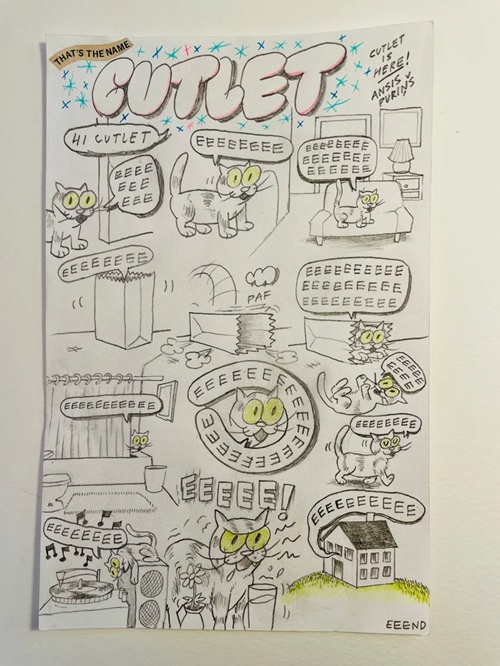 THAT'S THE NAME
CUTLET
CUTLET
IS
HERE!
ANSIS
PURINS
HI CUTLET
EEEE
EEE
EEE
EEEEEEEE
EEEEEEEE
EEEEEEE
EEEEEE
EEEEEEEE
PAF
EEEEEEEEEEE
EEEEEEEEEEE
EEEEEEEEEEE
EEEEEEEEEEE
EEEEE!
EEEEEEEE
EEEEEEEEEE
EEEND